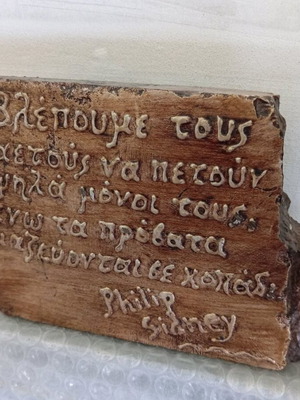 βλέπουμε τους
αετούς να πετούν
ψηλά μόνοι τους.
ενω τα πρόβατα
μαζεύονται σε κοπάδι.
Philip
Sidney